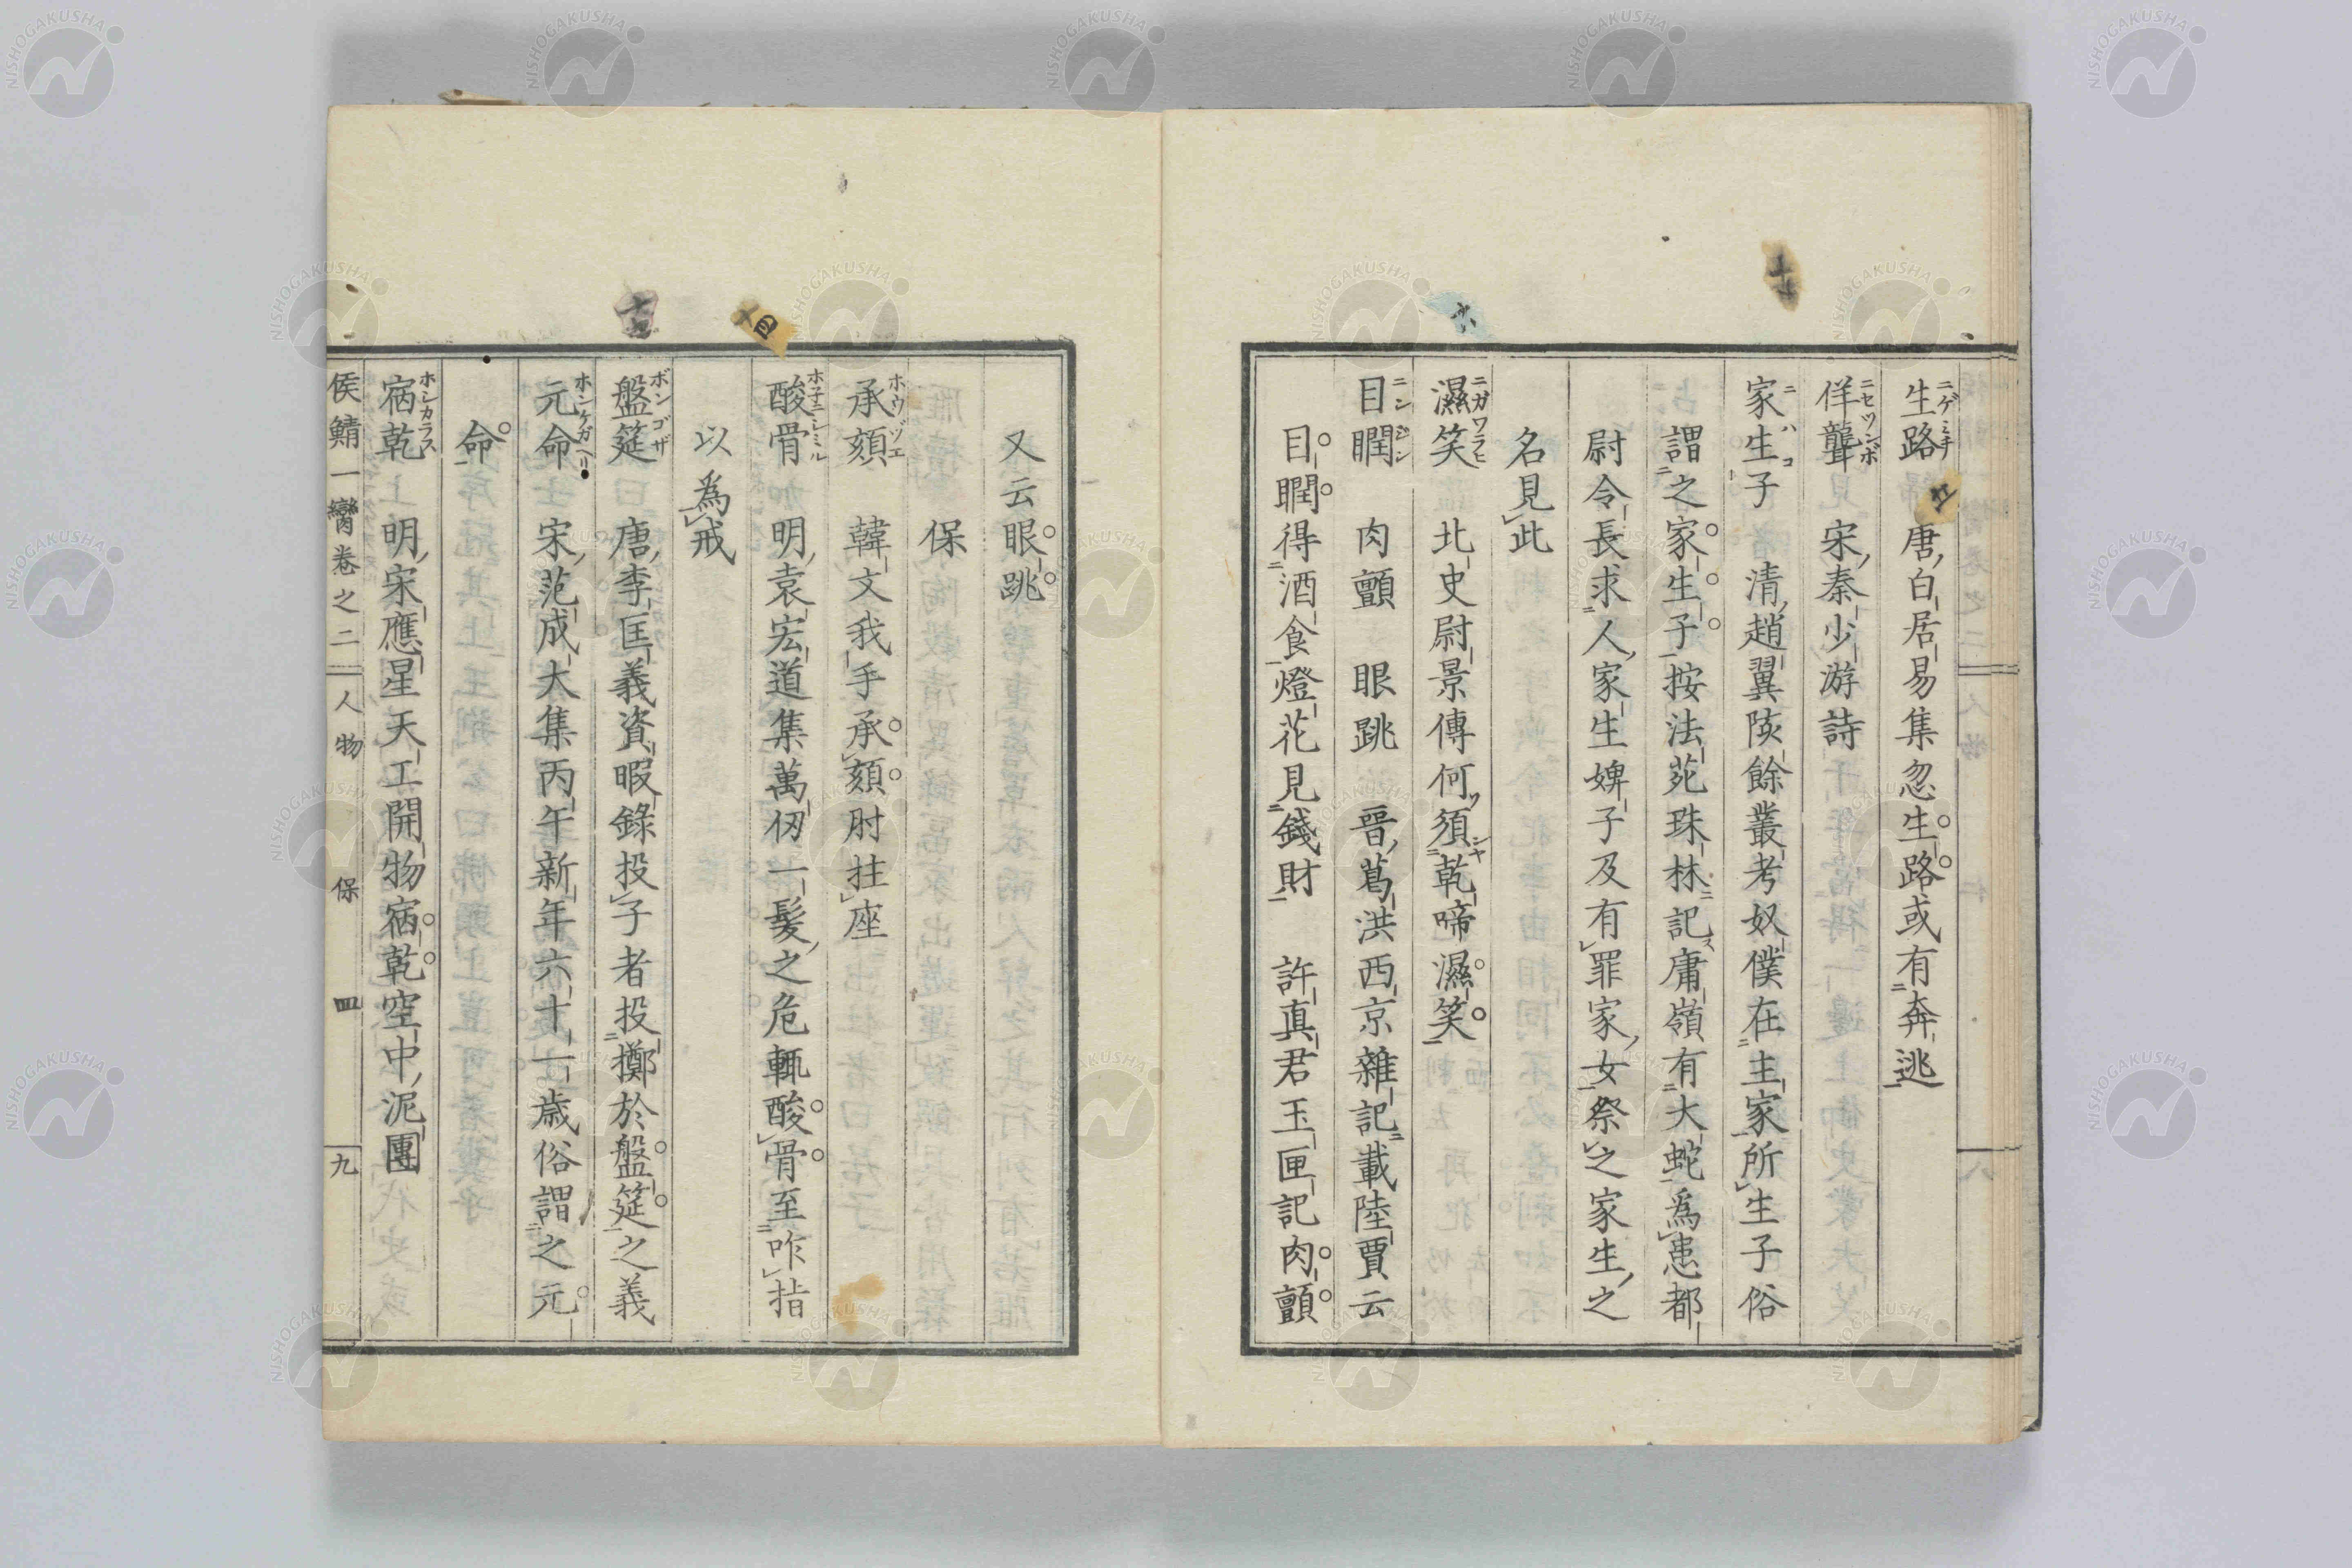 生路 唐白居易集忽生路或有奔逃
ニゲミチ
佯聾 宋秦少游詩
ニセツンボ
家生子 清趙翼陔餘叢考奴僕在主家所生子俗
ニハコ
謂之家生子按法苑珠林記庸嶺有大蛇爲患都
尉令長求人家生婢子及有罪家女祭之家生之
名見此
濕笑 北史尉景傳何須乾啼濕笑
ニガワラヒ
目瞤 肉顫 眼跳 晉葛洪西京雜記載陸賈云
ニンジン
目瞤得酒食燈花見錢財 許真君玉匣記肉顫
又云眼跳
保
承頦 韓文我手承頦肘拄座
ホウヅエ
酸骨 明袁宏道集萬仞一髮之危輒酸骨至咋指
ホネニシミル
以爲戒
盤筵 唐李匡義資暇錄投子者投擲於盤筵之義
ボンゴザ
元命 宋范成大集丙午新年六十一歳俗謂之元
ホンケガヘリ
命
宿乾 明宋應星天工開物宿乾空中泥團
ホシカラス
侯鯖一臠卷之二 人物 保 四 九
十
六
十四
NISHOGAKUSHA